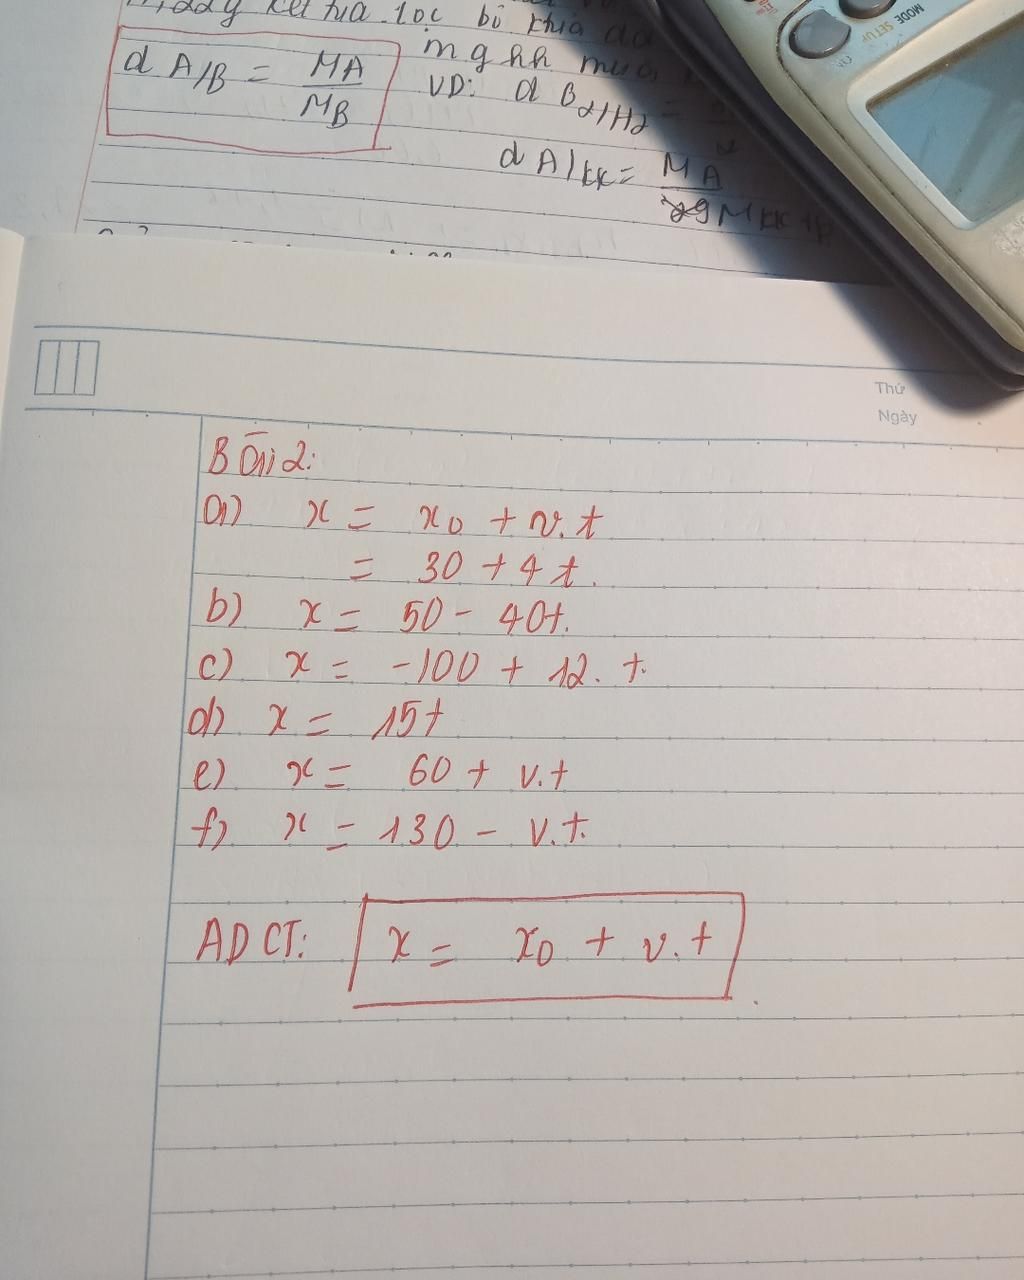 kết tủa lọc bỏ
d A/B = MA / MB
m g hh
VD: d B2/H2 =
d A/kk = MA / 29 M kk
MODE SETUP
Thứ
Ngày
Bài 2:
a) x = x0 + v.t
= 30 + 4t.
b) x = 50 - 40t.
c) x = -100 + 12. t.
d) x = 15t
e) x = 60 + v.t
f) x = 130 - v.t.
ADCT: x = x0 + v.t